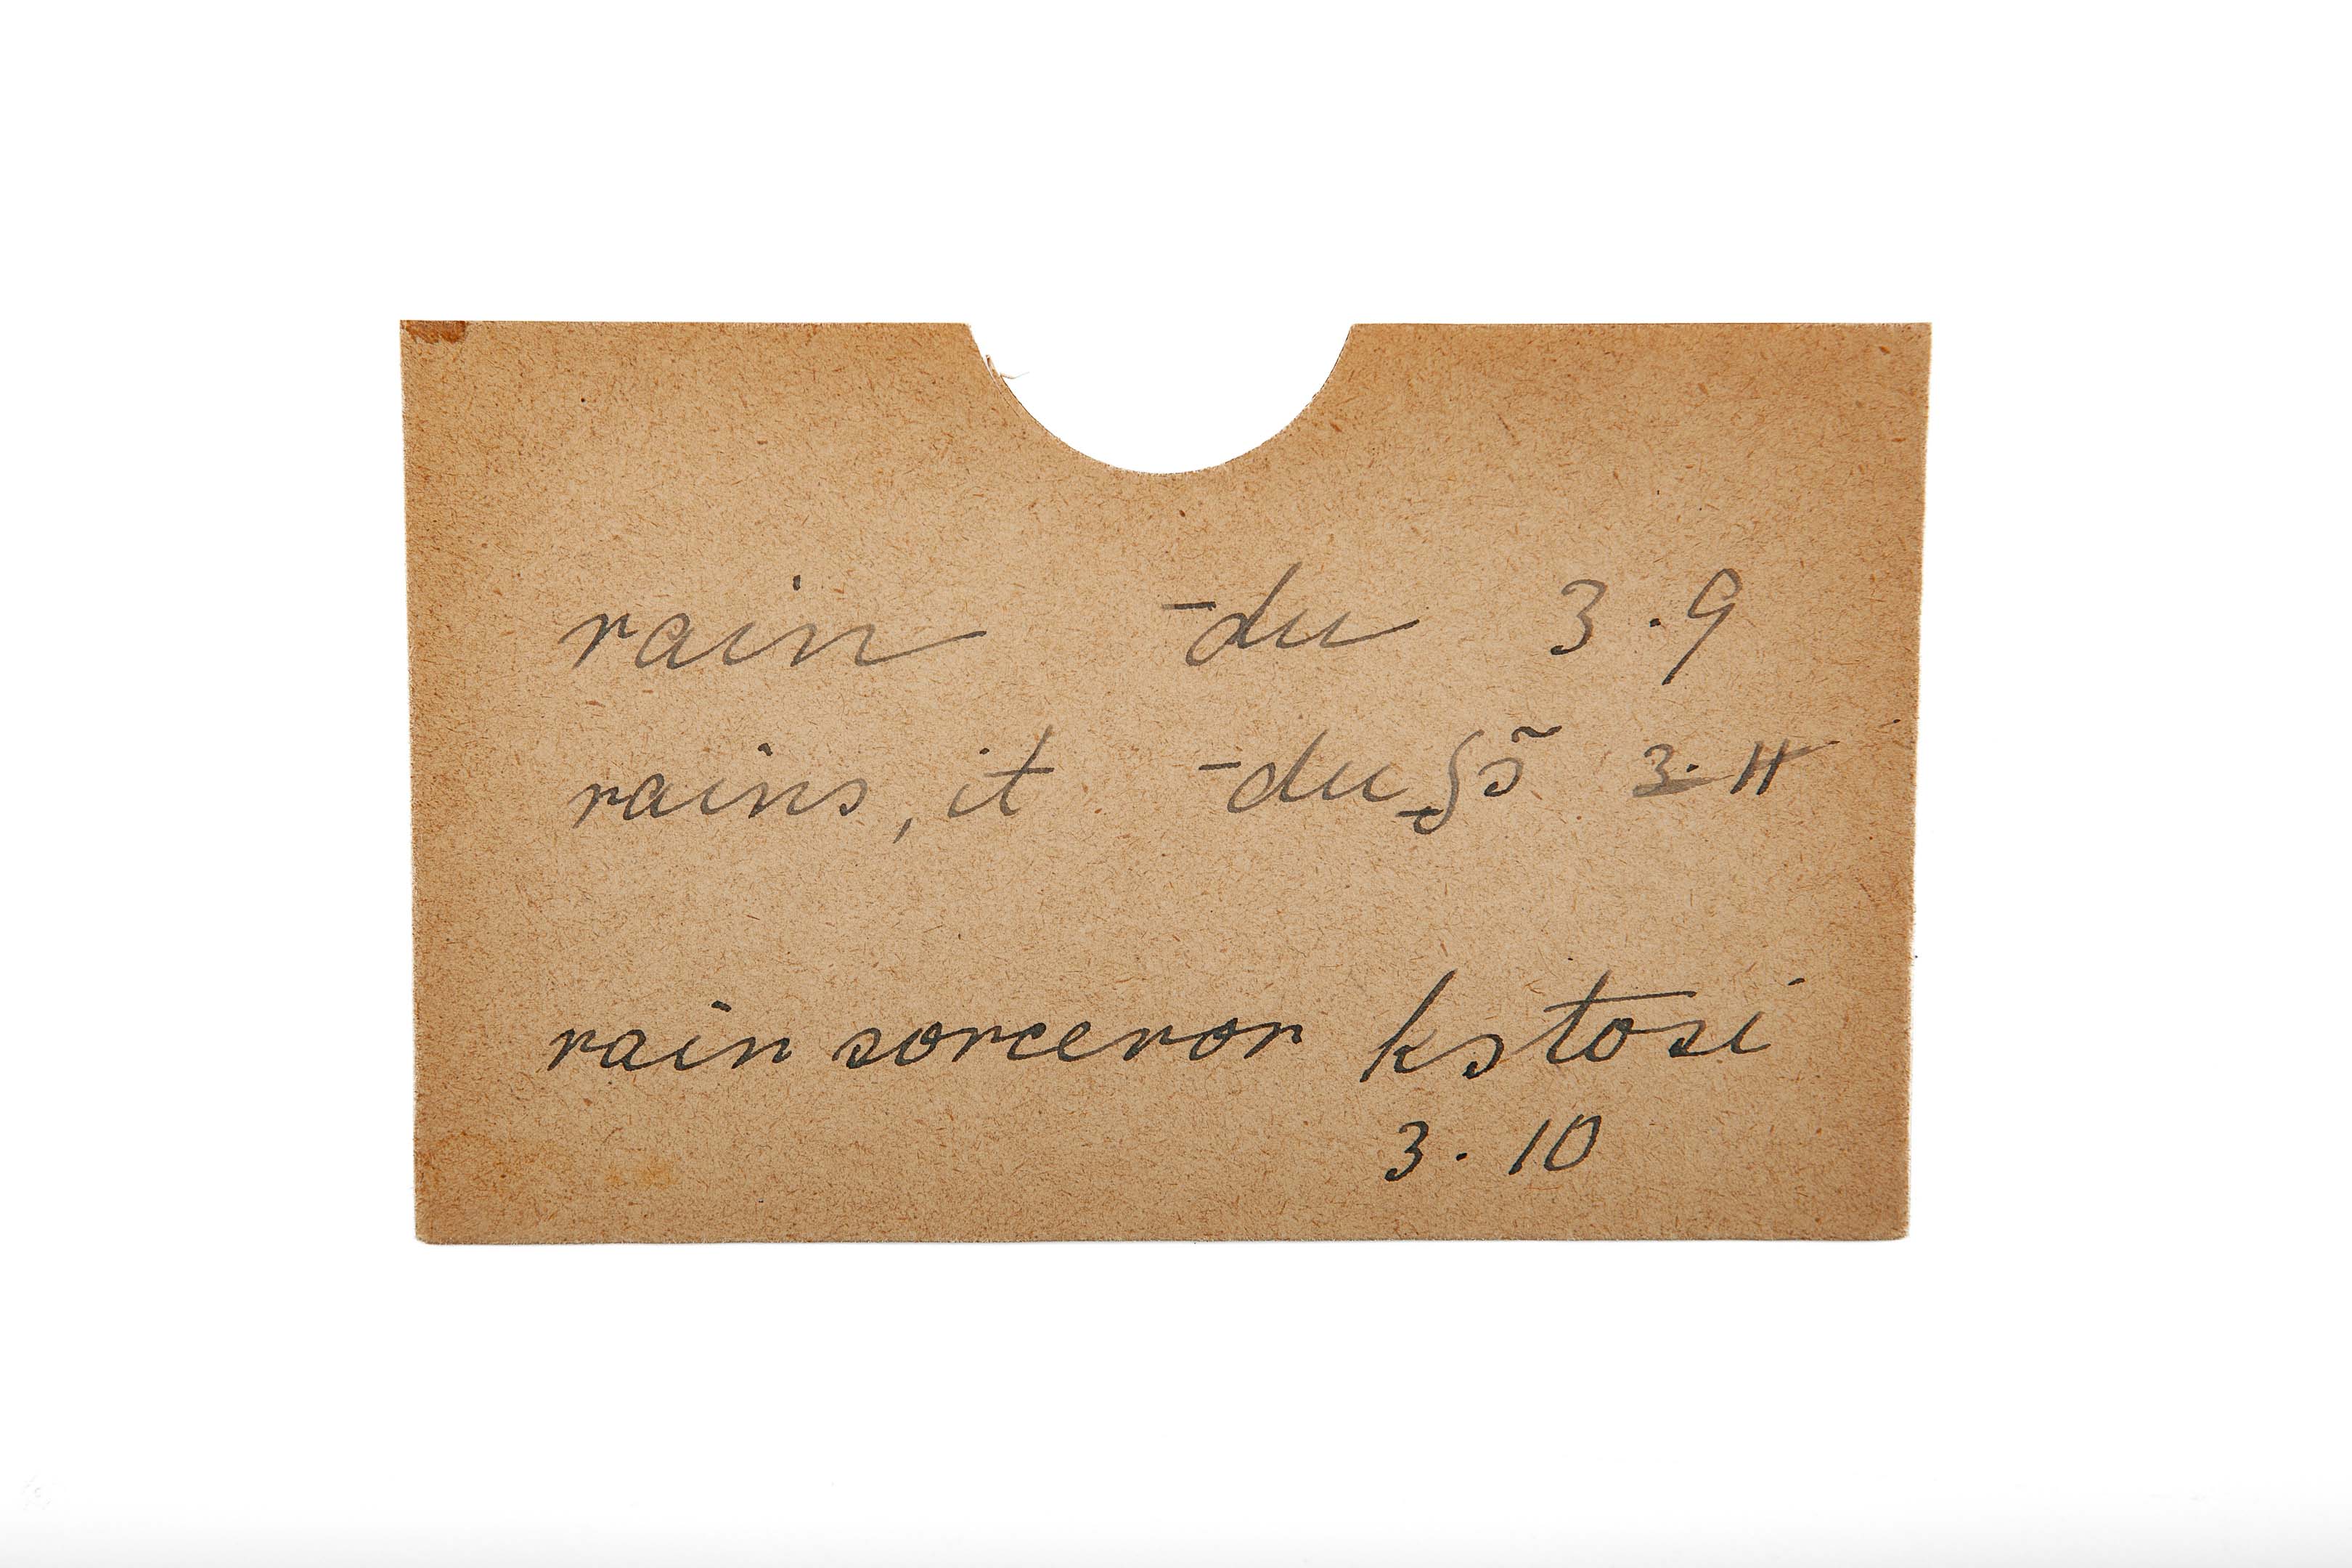 rain -du 3.9
rains, it -du 3.11
rain sorceror kstosi
3. 10